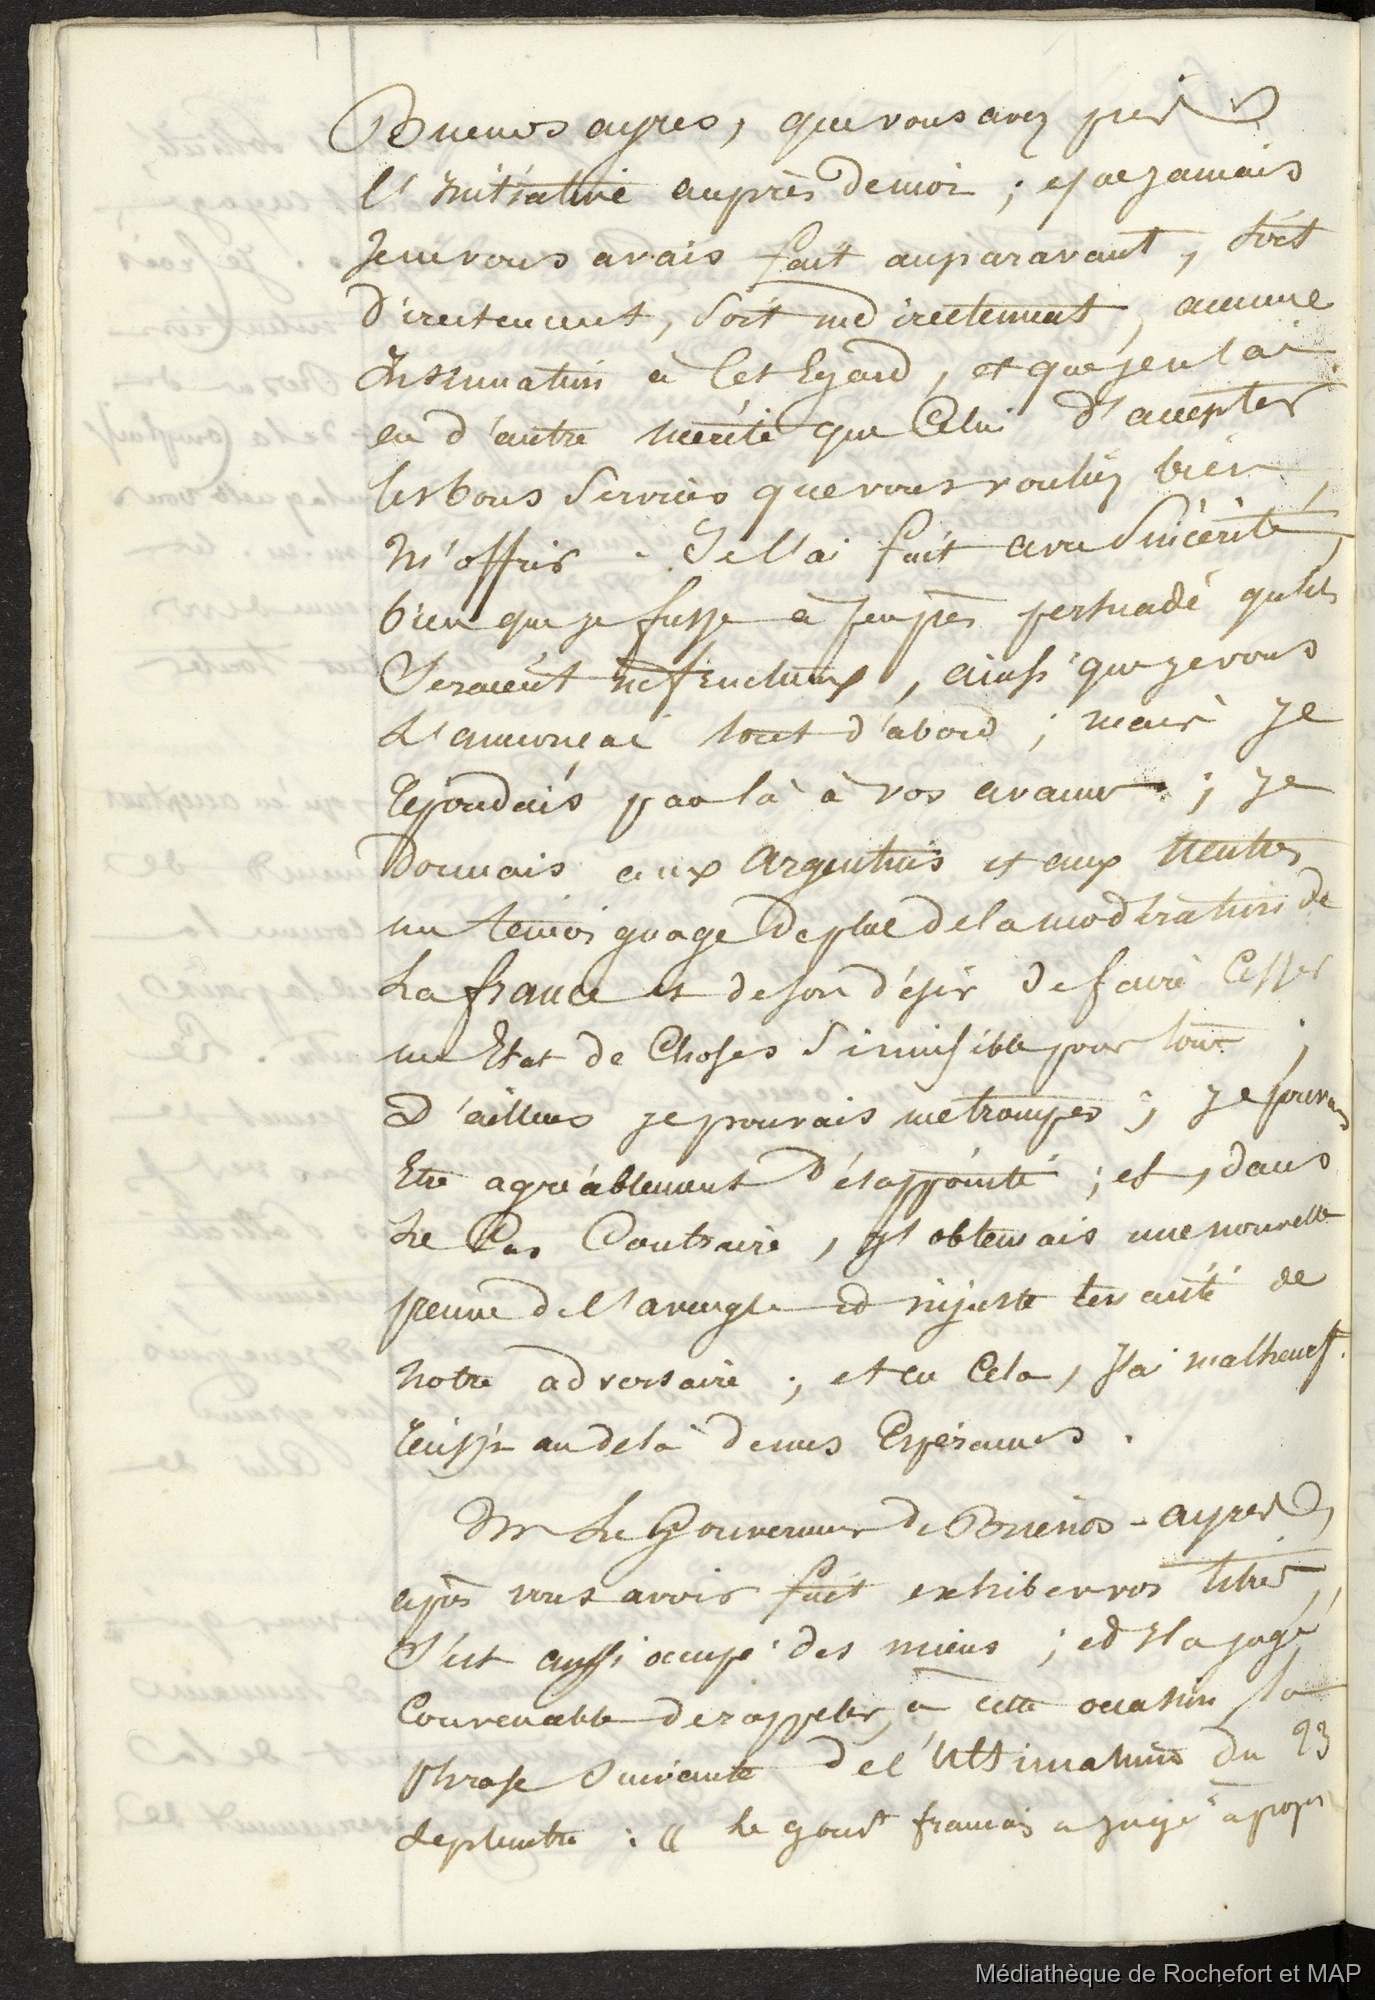 Buenos ayres, que vous avez pris
l'initiative auprès de moi ; que jamais
je ne vous avais fait auparavant, soit
directement, soit indirectement, aucune
insinuation à cet Egard, et que je n'ai
eu d'autre mérite que Celui d'accepter
les bons Services que vous vouliez bien
m'offrir. Je l'ai fait avec Sincérité,
bien que je fusse à peu près persuadé qu'ils
Seraient infructueux, ainsi que je vous
L'annonçai tout d'abord ; mais je
répondais par là à vos avances ; je
donnais aux Argentins et aux neutres
un témoignage de plus de la modération de
La france et de son désir de faire Cesser
un Etat de Choses Si nuisible pour tous ;
D'ailleurs je pouvais me tromper ; je pouvais
Etre agréablement désappointé ; et, dans
Le Cas Contraire, j'obtenais une nouvelle
preuve de l'aveugle et injuste ténacité de
notre adversaire ; et en Cela, j'ai malheurt.
réussi au delà de mes Espérances.
Mr Le Gouverneur de Buenos-ayres,
après vous avoir fait exhiber vos titres,
S'est aussi occupé des miens ; et il a jugé
Convenable de rappeler, à cette occasion, la
phrase Suivante de l'Ultimatum du 23
Septembre : « Le gouvt français a jugé à propos
Médiathèque de Rochefort et MAP